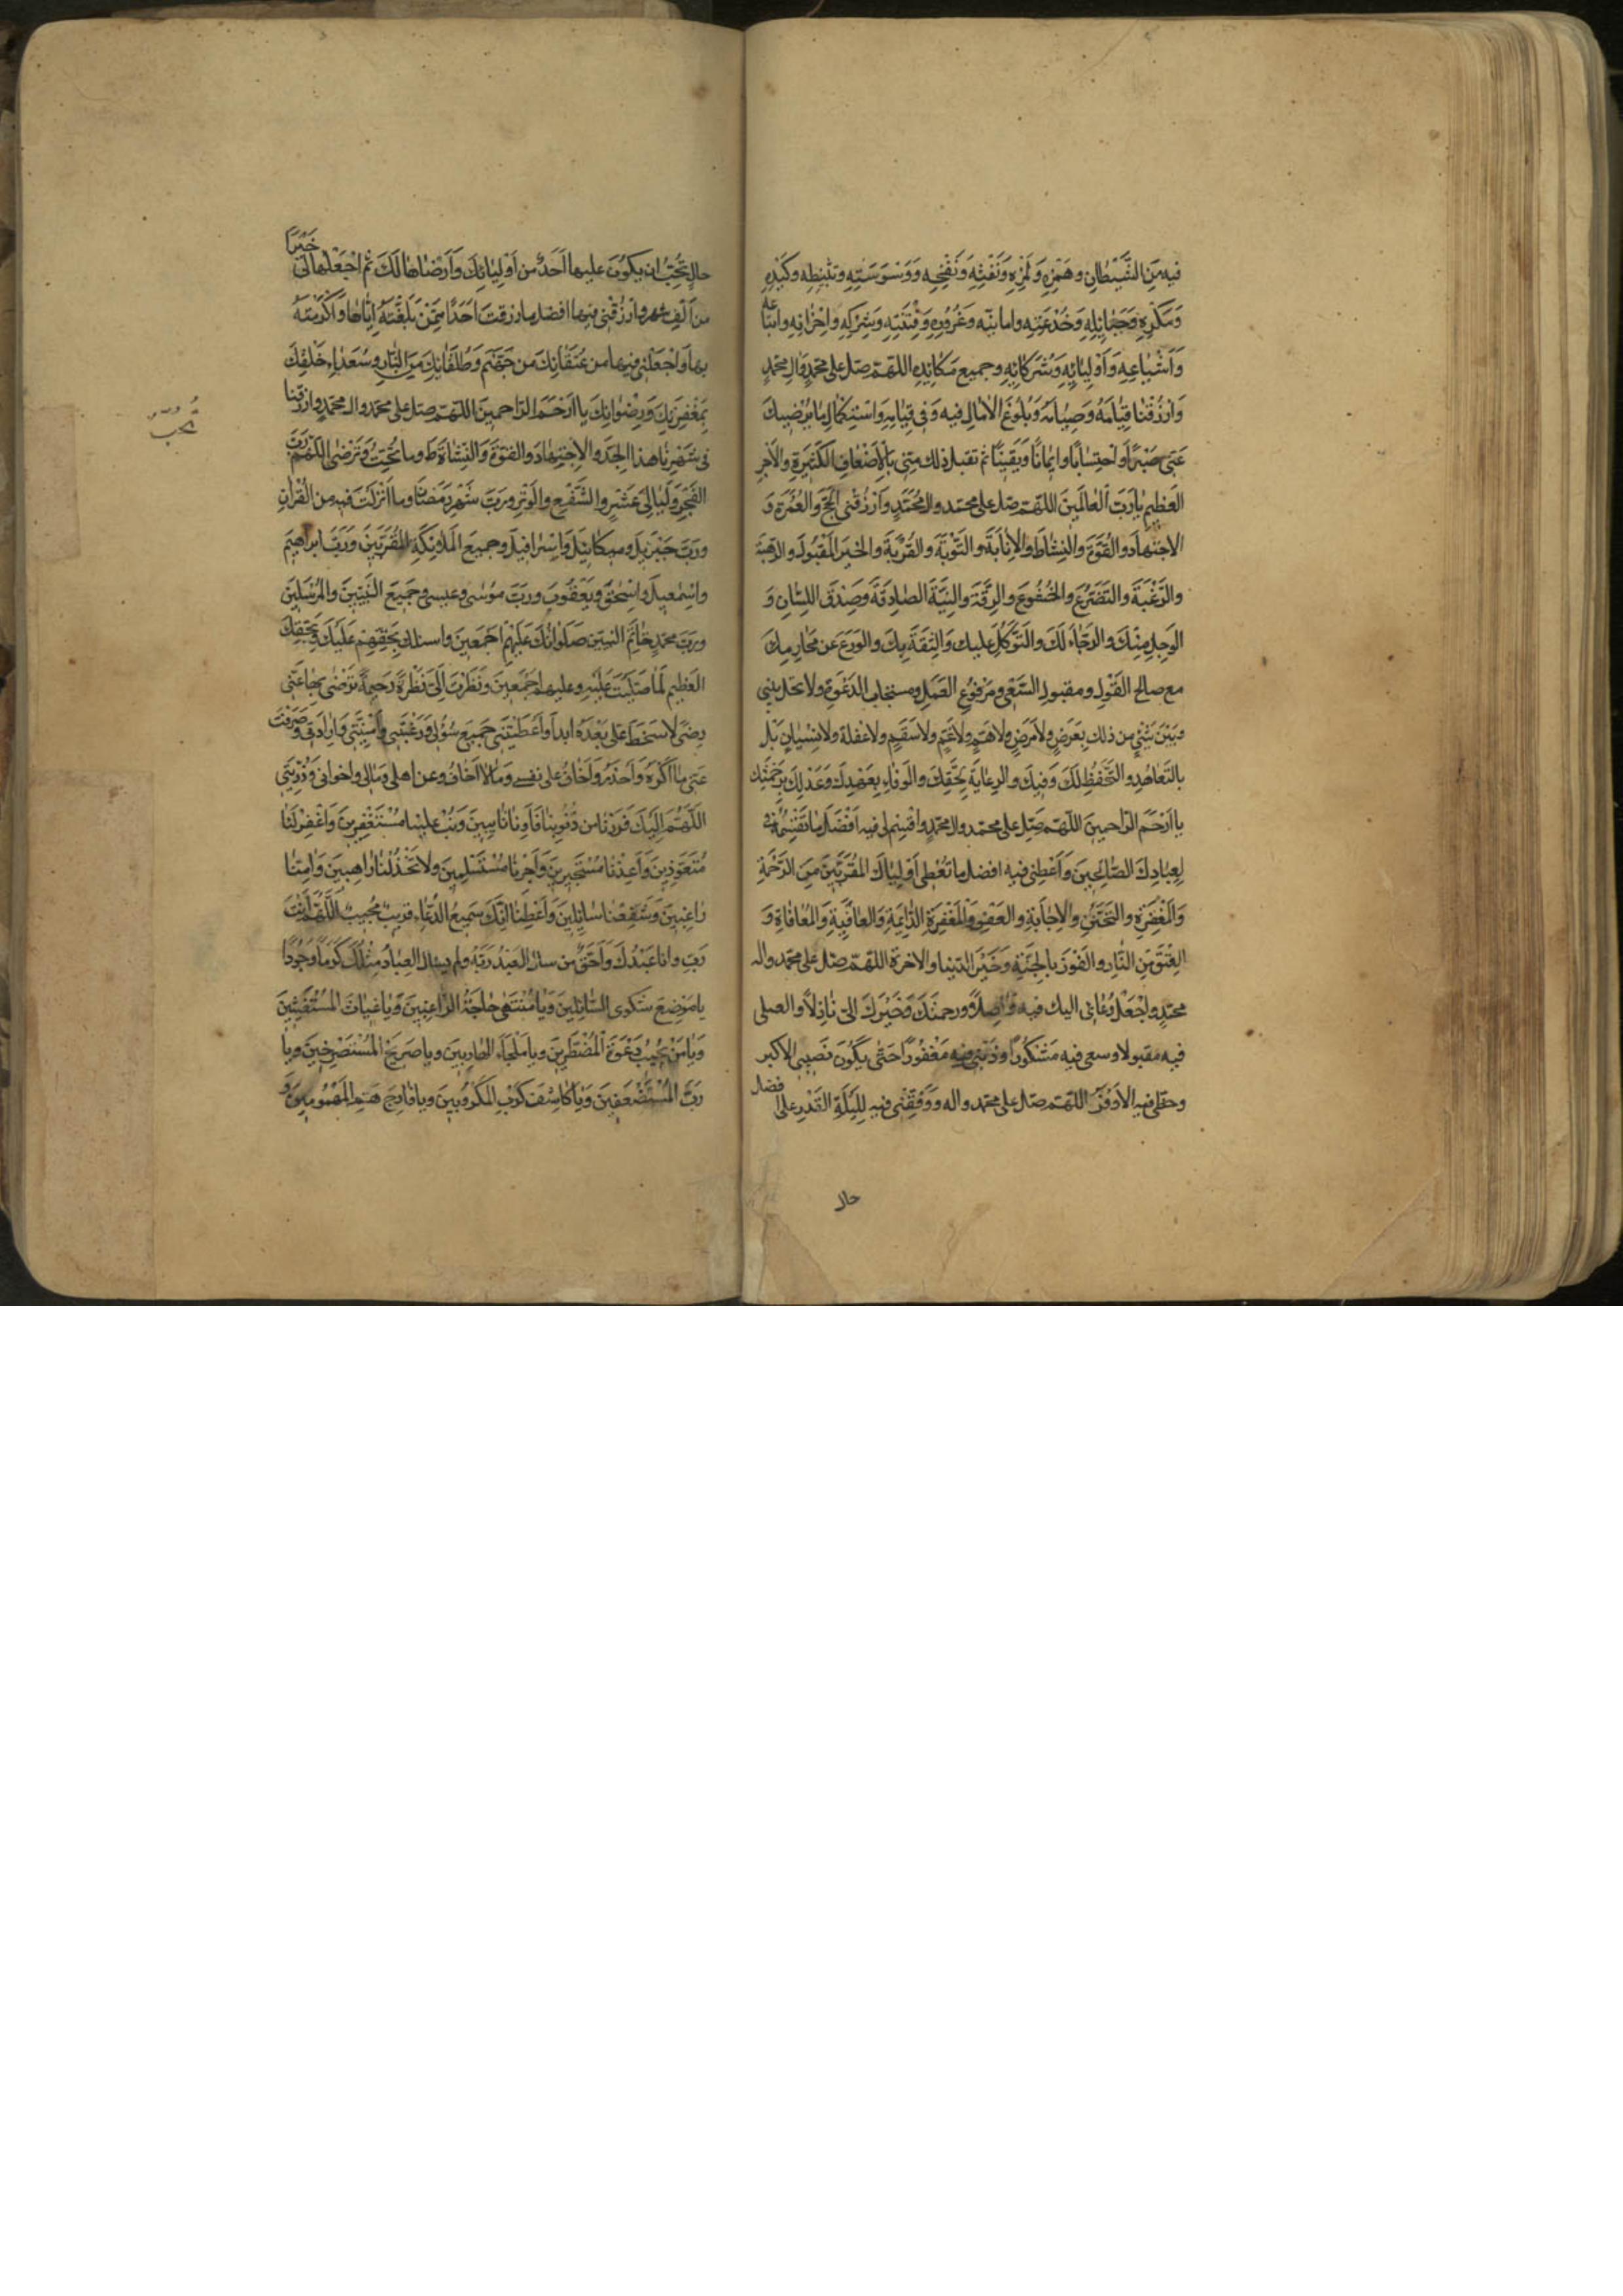 فيه مِنَ الشَّيْطانِ وهَمْزِهِ وَلَمْزِهِ وَنَفْثِهِ وَنَفْخِهِ وَوَسْوَسَتِهِ وتَثْبِطِهِ وكَيْدِهِ
وَمَكْرِهِ وَحَبائِلِهِ وَخُدْعَتِهِ وامانيّه وَغُرُورِهِ وَفِتْنَتِهِ وَشَرَكِهِ وَاَحْزابِهِ واتباعه
وَاَشْياعِهِ وَاَوْلِيائِهِ وَشُرَكائِهِ وجميع مَكائِدِهِ اللهمّ صلّ على محمّدٍ وَآلِ محمّدٍ
وَارْزُقْنا قِيٰامَهُ وَصِيٰامَهُ وَبُلُوغَ الْاَمالِ فيه وَفى قِيٰامِهِ وَاسْتِكْمٰالِ مٰا يُرْضيكَ
عَنّى صَبْراً وَاحْتِسٰاباً وايمٰاناً وَيَقيناً ثم تقبل ذلك مِنّى بِالْاَضْعافِ الْكَثيرَةِ والْاَجْرِ
العَظيمِ يٰا رَبَّ الْعٰالَمينَ اللهمّ صلّ على محمّد وال مُحَمَّدٍ وَارْزُقْنى الحَجَّ وَالْعُمْرَةَ وَ
الاجْتِهٰادَ والقُوَّةَ والنِشٰاطَ والْاِنٰابَةَ والتَّوْبَةَ والقُرْبَةَ والخَيرَ المَقْبُولَ والرهبة
والرَّغْبَةَ والتَّضَرُّعَ والخُشُوعَ والرِّقَّةَ والنِيَّةَ الصّادِقَةَ وَصِدْقَ اللِّسانِ وَ
الوَجَلَ مِنْكَ والرَّجٰاءَ لَكَ والتَّوَكُّلَ عليك وَالثِقَةَ بِكَ والوَرَعَ عن مَحٰارِمِكَ
مع صالحِ القَوْلِ ومقبولِ السَّعْىِ ومَرْفُوعِ العَمَلِ ومستجاب الدَعْوَةِ ولا تحل بينى
وبَيْنَ شَىْءٍ من ذلك بِعَرَضٍ ولا مَرَضٍ ولا هَمٍّ ولا غَمٍّ ولا سَقَمٍ ولا غفلة ولا نِسْيانٍ بَلْ
بالتَعٰاهُدِ والتَّحَفُّظِ لَكَ وَفيكَ والرِعٰايَةِ لِحَقِّكَ والوَفٰاءِ بِعَهْدِكَ وَوَعْدِكَ بِرَحْمَتِكَ
يا ارْحَمَ الرّاحمينَ اللهمّ صَلِّ على محمّد وال محمّدٍ واقْسِم لى فيه اَفْضَلَ ما تَقْسِمُهُ
لِعِبٰادِكَ الصّالِحينَ وَاَعْطِنى فيه افضل ما تُعْطى اَوْلِيٰاكَ المُقَرَّبينَ مِنَ الرَّحْمَةِ
وَالْمَغْفِرَةِ والتَّحَنُّنِ والْاِجٰابَةِ والعَفْوِ والْمَغْفِرَةِ الدّٰائِمَةِ وَالعٰافِيَةِ وَالمُعٰافٰاةِ وَ
العِتْقِ مِنَ النّٰارِ والْفَوْزِ بالجَنَّةِ وَخَيْرِ الدّنيا والاخرة اللهمّ صلّ على محمّد واله
محمّدٍ واجْعَلْ دُعٰائى اليك فيه وٰاصِلاً وَرحمتَكَ وَخَيْرَكَ اِلىَّ نٰازِلاً والعملى
فيه مقبولا وسعى فيه مَشْكُورًا وذَنْبى فيه مَغْفُورًا حَتّى يَكُونَ نَصيبى الاكبر
وحظى فيه الاَوْفَرَ اللهمّ صَلّ على محمّد واله وَوَفِّقْنى فيه لِلَيْلَةِ القَدْرِ على افضل
حال
حالٍ تُحِبُّ ان يكوُنَ عليها اَحَدٌ من اَوْلِيٰائِكَ وَاَرْضٰاهٰا لَكَ ثُمَّ اجْعَلْهٰا لى خَيْرًا
من اَلْفِ شهر وارْزُقْنى فيها افضل ما رزقتَ اَحَدًا مِمَّنْ بَلَّغْتَهُ اِيّٰاهٰا وَاَكْرَمْتَهُ
بها وَاجْعَلْنى فيها من عُتَقٰائِكَ من جَهَنَّمَ وَطُلَقٰائِكَ مِنَ النّارِ وسُعَدٰاءِ خَلْقِكَ
بِمَغْفِرَتِكَ وَرِضْوٰانِكَ يا ارْحَمَ الرّاحمينَ اللهمّ صلّ على محمّد وال محمّدٍ وارزقنا
فى شَهْرِنٰا هذا الجِدَّ والاِجْتِهٰادَ والقوَّةَ وَالنَّشٰاةَ ط وما تُحِبُّ وَتَرْضٰى اللّٰهُمَّ رَبَّ
الفَجْرِ وَلَيٰالى عَشْرٍ والشَّفْعِ والْوَتْرِ ورَبَّ شَهْرِ رَمَضٰانَ وما اَنْزَلْتَ فيه من القُرآنِ
ورَبَّ جَبْرَئيلَ وميكٰائيلَ وَاِسْرٰافيلَ وجميعِ المَلاٰئِكَةِ المُقَرَّبينَ وَرَبَّ ابراهيمَ
واِسْمٰعيلَ واِسْحٰقَ ويَعْقوُبَ ورَبَّ موُسٰى وعيسى وجَميعِ النَّبيّينَ والمُرْسَلينَ
ورَبَّ محمّدٍ خٰاتَمِ النبيّين صَلَوٰاتُكَ عَلَيْهِمْ اجْمَعينَ واسئلك بِحَقِّهِمْ عَلَيْكَ وَبِحَقِّكَ
العَظيمِ لَمّا صَلَّيْتَ عَلَيْهِ وعليهم اجْمَعينَ ونَظَرْتَ اِلَىَّ نَظْرَةً رَحيمَةً تَرْضٰى بِهٰا عَنّى
رِضًى لا سَخَطَ عَلىَّ بَعْدَهُ ابداً وَاَعْطَيْتَنى جَميعَ سُؤْلى وَرَغْبَتى واُمْنِيَّتى وَاِرٰادَتى وصَرَفْتَ
عَنّى مٰا اَكْرَهُ وَاَحْذَرُ وَاَخٰافُ على نفسى وَمٰا لا اَخٰافُ وعن اهلى وَمٰالى واخوانى وَذُرِّيَّتى
اللّٰهُمَّ اِلَيْكَ فَرَرْنٰا من ذُنُوبِنٰا فَآوِنٰا تٰائِبينَ وَتُبْ علينا مُسْتَغْفِرينَ وَاغْفِرْ لَنٰا
مُتَعَوِّذينَ وَاَعِذْنٰا مُسْتَجيرينَ وَاَجِرْنٰا مُسْتَسْلِمينَ ولا تَخْذُلْنٰا رٰاهِبينَ وَآمِنّٰا
رٰاغِبينَ وَشَفِّعْنٰا سٰائِلينَ وَاَعْطِنٰا اِنَّكَ سَميعُ الدُّعٰاءِ قريبٌ مجُيبٌ اللّٰهُمَّ اَنْتَ
رَبّى وانا عَبْدُكَ وَاَحَقُّ من سال العَبْدُ رَبَّهُ ولم يسال العِبٰادُ مِثْلَكَ كَرَماً وَجُودًا
يا مَوْضِعَ شكوى السّٰائِلينَ وَيٰا مُنْتَهٰى حٰاجَةِ الرّٰاغِبينَ وَيٰا غِيٰاثَ المُسْتَغيثينَ
وَيٰا مَنْ يُجيبُ دَعْوَةَ الْمُضْطَرّينَ ويا مَلْجَاءَ الهٰارِبينَ ويا صَريخَ المُسْتَصْرِخينَ ويٰا
رَبَّ المُسْتَضْعَفينَ وَيٰا كٰاشِفَ كَرْبِ المَكْرُوبينَ ويا فٰارِجَ هَمِّ المَهْمُومينَ وَ
تُحِبُّ